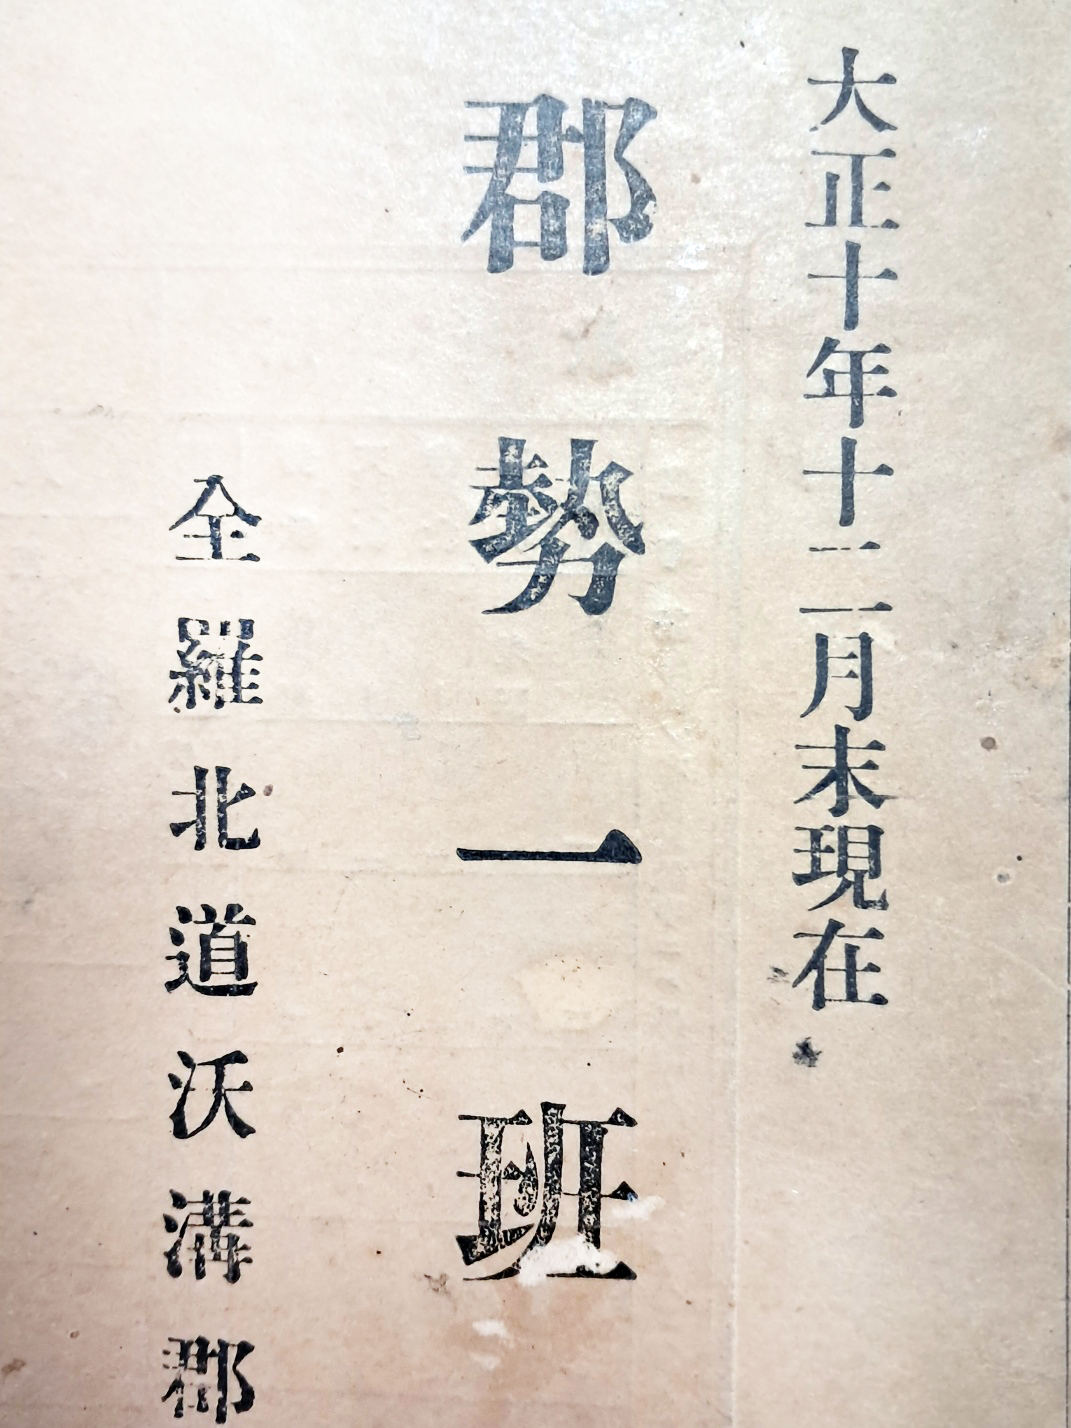 大正十年十二月末現在
郡勢一班
全羅北道沃溝郡